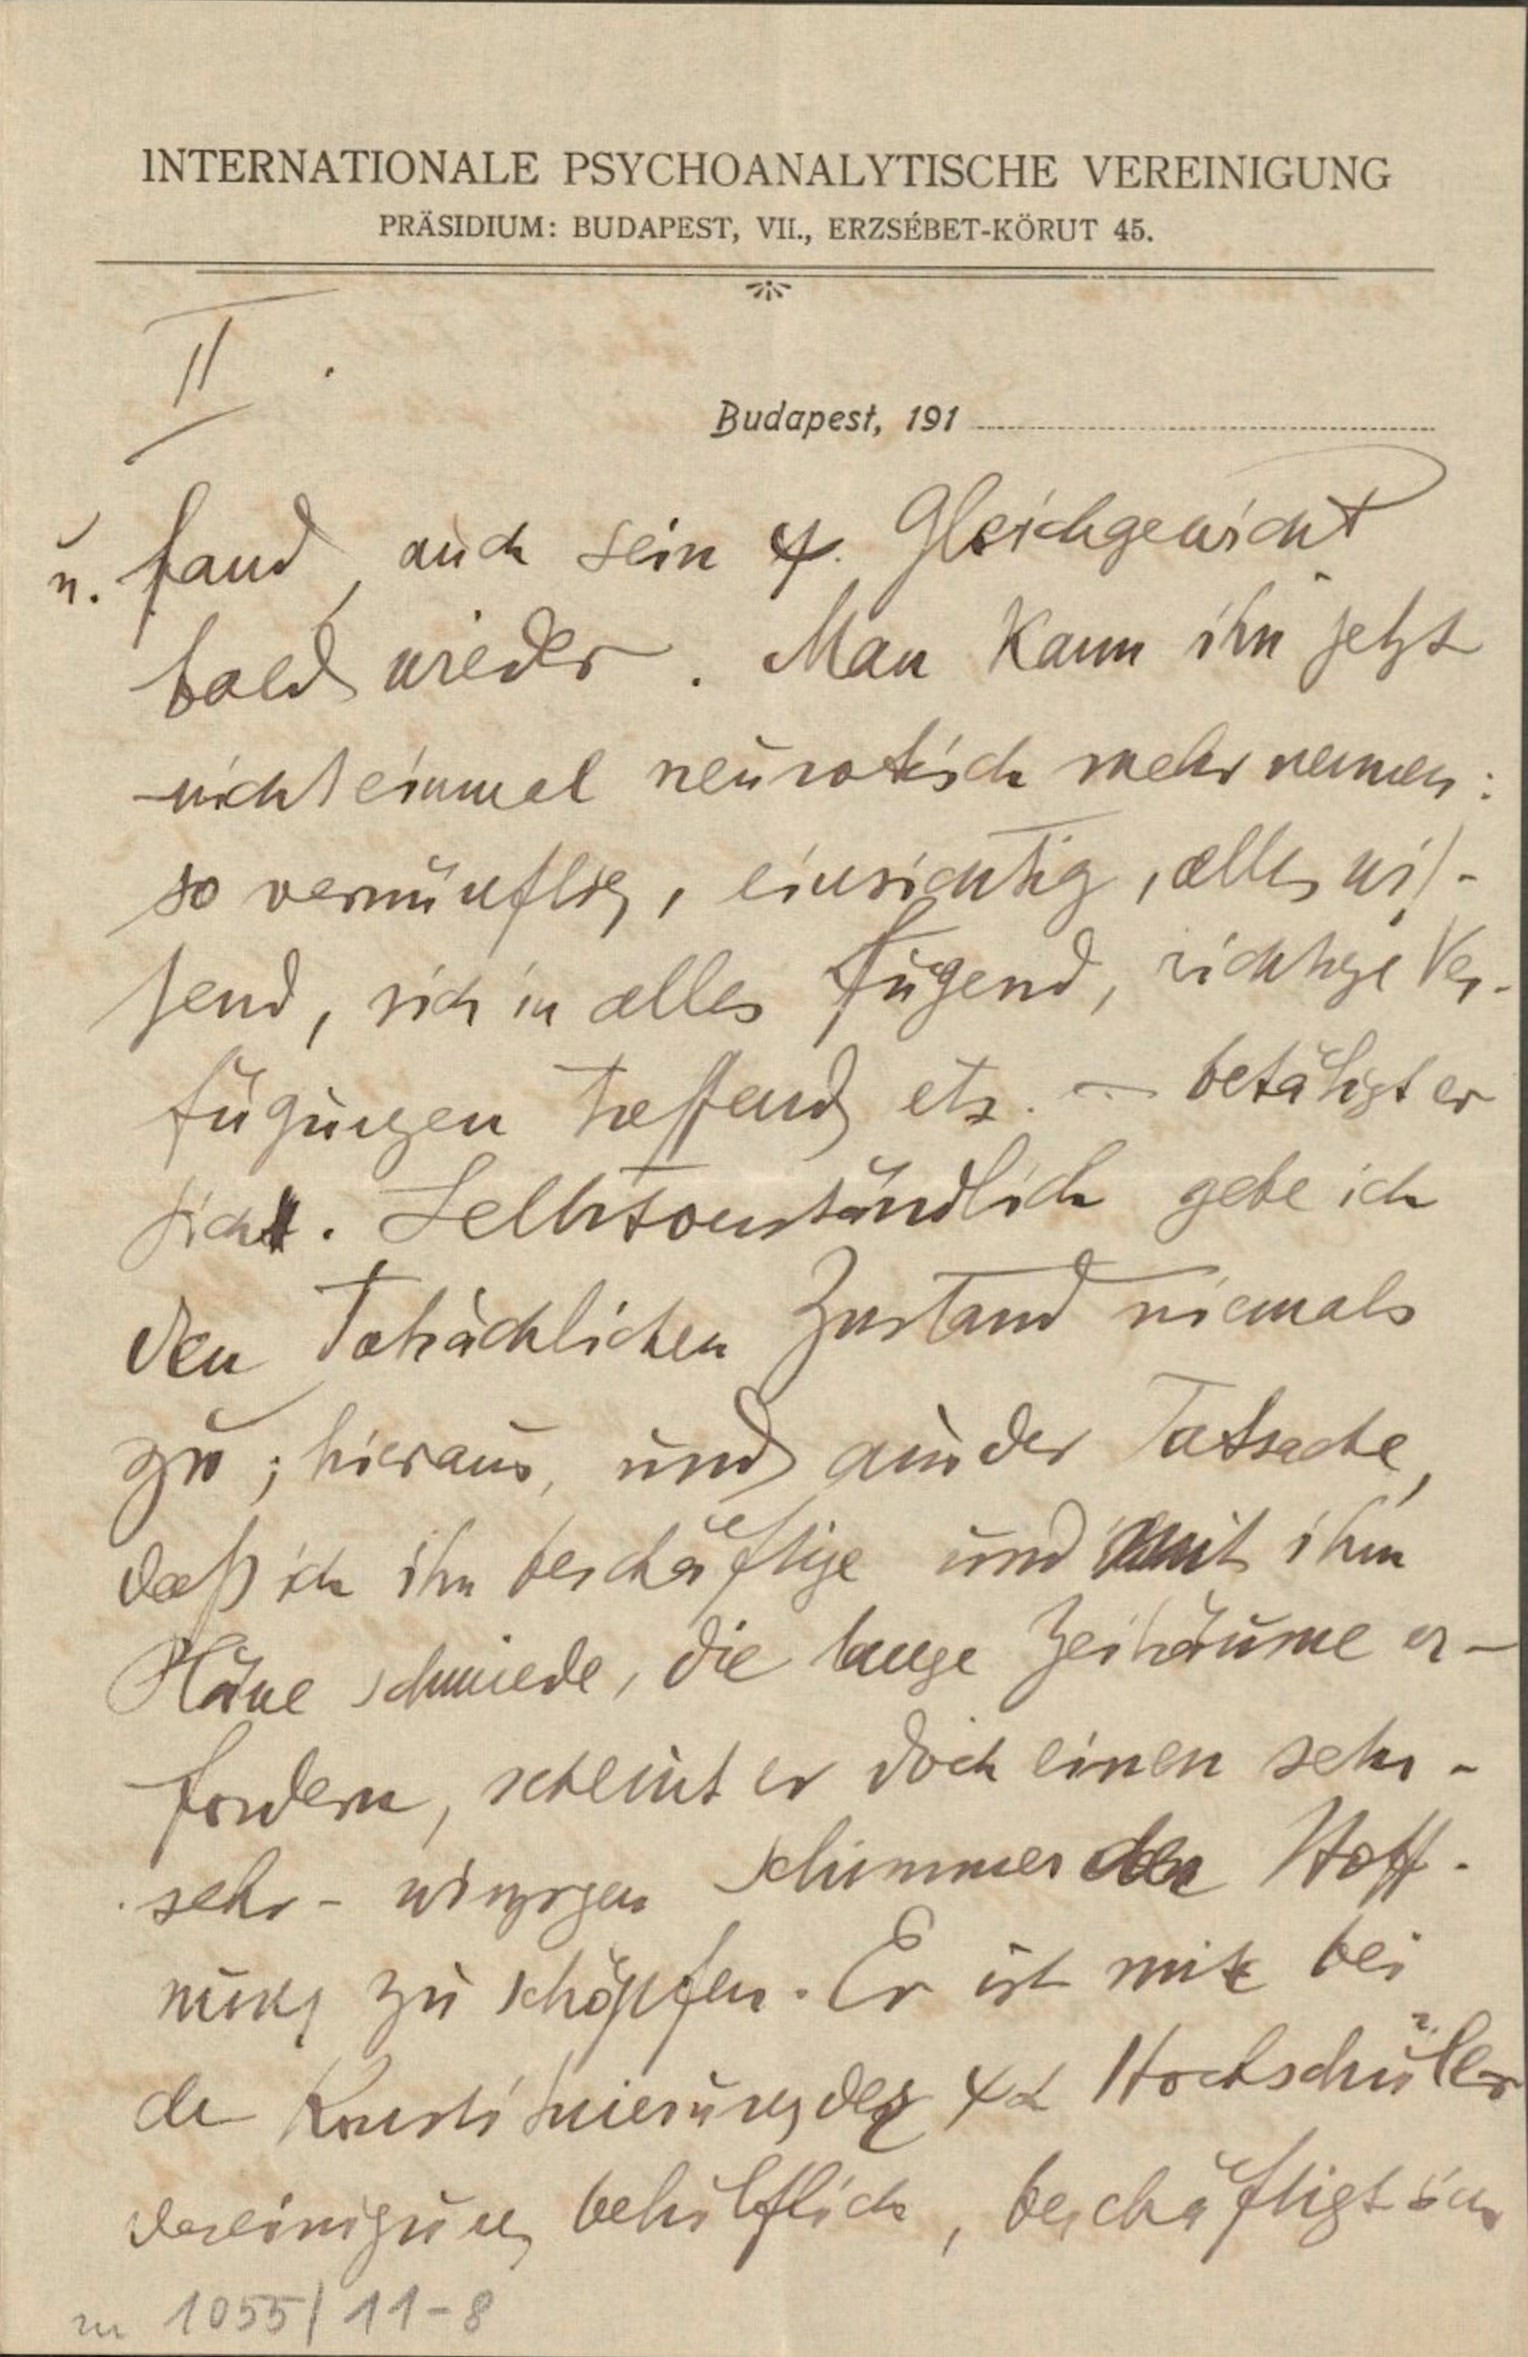 INTERNATIONALE PSYCHOANALYTISCHE VEREINIGUNG
PRÄSIDIUM: BUDAPEST, VII., ERZSÉBET-KÖRUT 45.
II.
Budapest, 191
u. fand auch sein ψ. Gleichgewicht
bald wieder. Man kann ihn jetzt
nicht einmal neurotisch mehr nennen:
so vernünftig, einsichtig, alles wis-
send, sich in alles fügend, richtige Ver-
fügungen treffend etz. – betätigt er
sich. Selbstverständlich gebe ich
den tatsächlichen Zustand niemals
zu; hieraus, und aus der Tatsache,
daß ich ihn beschäftige und mit ihm
Pläne schmiede, die lange Zeiträume er-
fordern, scheint er doch einen sehr-
sehr- winzigen Schimmer der Hoff-
nung zu schöpfen. Er ist mir bei
der Konstituierung der ψα Hochschüler
vereinigung behülflich, beschäftigt sich
zu 1055/11-8